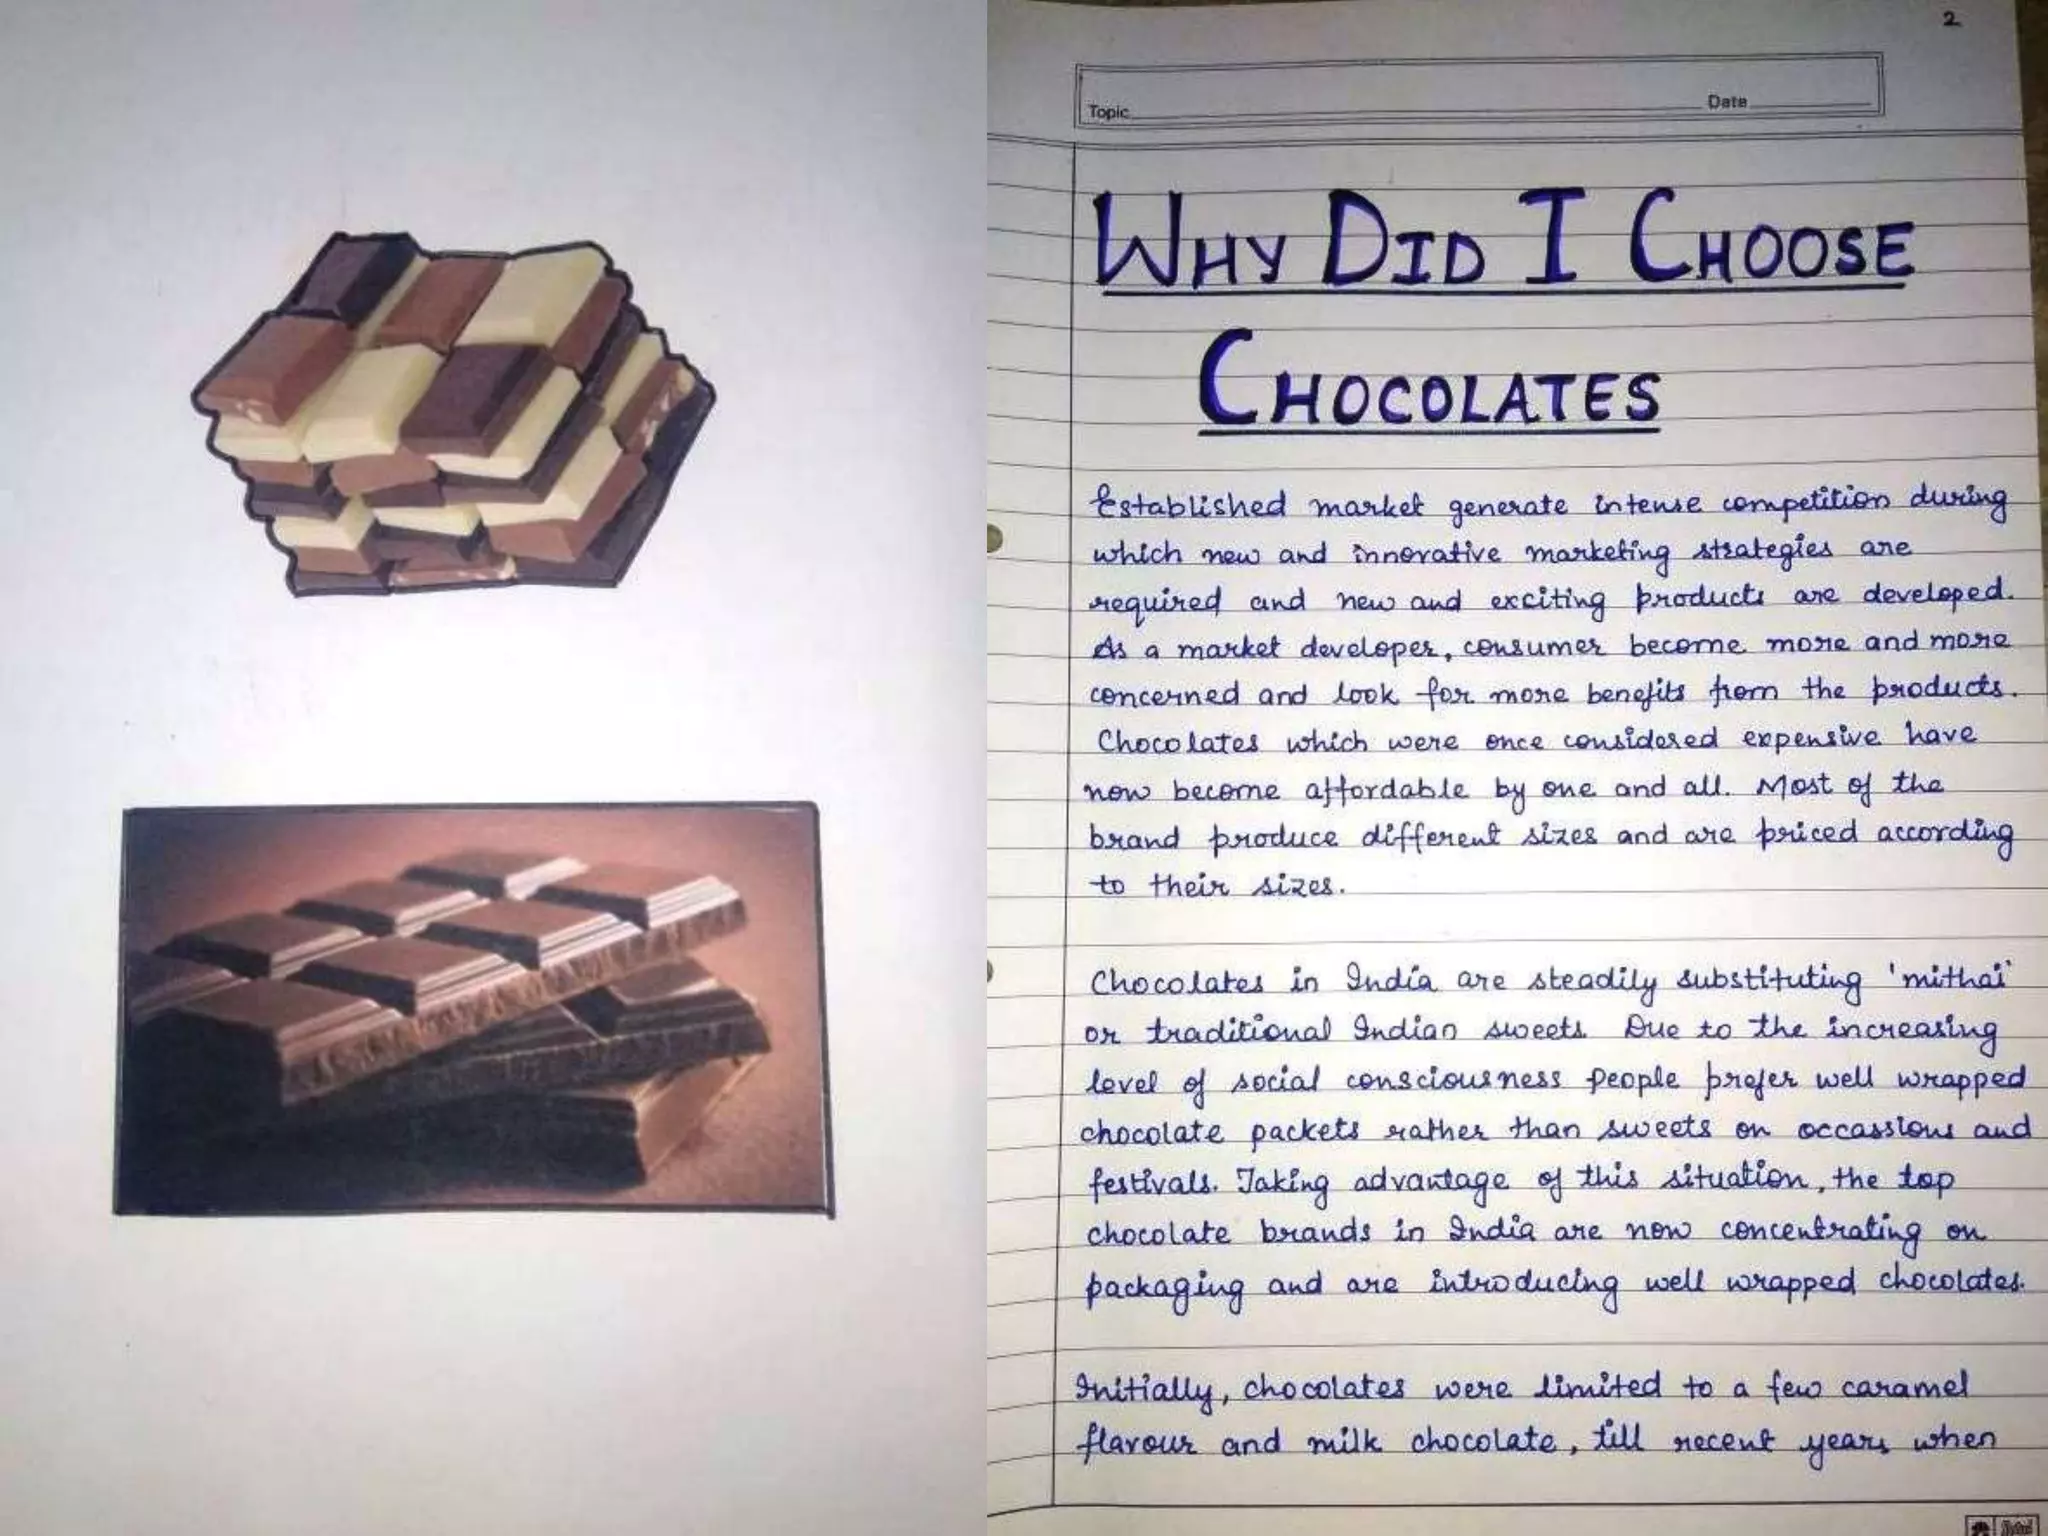 2
Topic
Date
WHY DID I CHOOSE
CHOCOLATES
Established market generate intense competition during
which new and innovative marketing strategies are
required and new and exciting products are developed.
As a market developer, consumer become more and more
concerned and look for more benefits from the products.
Chocolates which were once considered expensive have
now become affordable by one and all. Most of the
brand produce different sizes and are priced according
to their sizes.
Chocolates in India are steadily substituting 'mithai'
or traditional Indian sweets Due to the increasing
level of social consciousness people prefer well wrapped
chocolate packets rather than sweets on occassions and
festivals. Taking advantage of this situation, the top
chocolate brands in India are now concentrating on
packaging and are introducing well wrapped chocolates.
Initially, chocolates were limited to a few caramel
flavour and milk chocolate, till recent years when